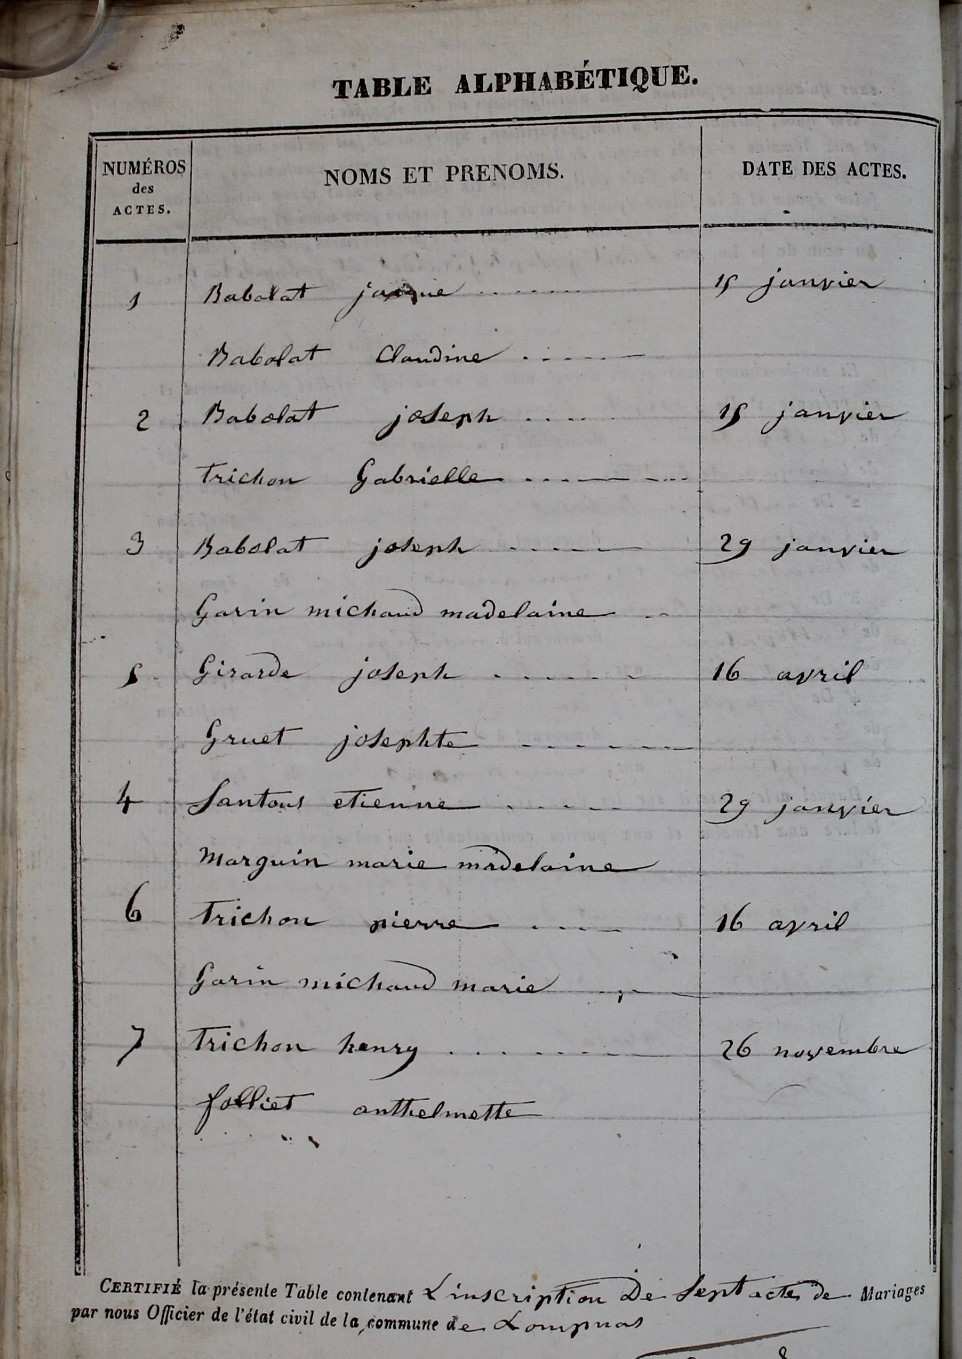 TABLE ALPHABÉTIQUE.
NUMÉROS des ACTES. NOMS ET PRENOMS. DATE DES ACTES.
1 Babolat jacque 15 janvier
Babolat Claudine
2 Babolat joseph 15 janvier
Trichon Gabrielle
3 Babolat joseph 29 janvier
Garin michaud madelaine
5 Girarde joseph 16 avril
Gruet josephte
4 Santous etienne 29 janvier
Marguin marie madelaine
6 Trichon pierre 16 avril
Garin michaud marie
7 Trichon henry 26 novembre
folliet anthelmette
CERTIFIÉ la présente Table contenant L'inscription De Sept actes de Mariages
par nous Officier de l'état civil de la commune de Lompnas